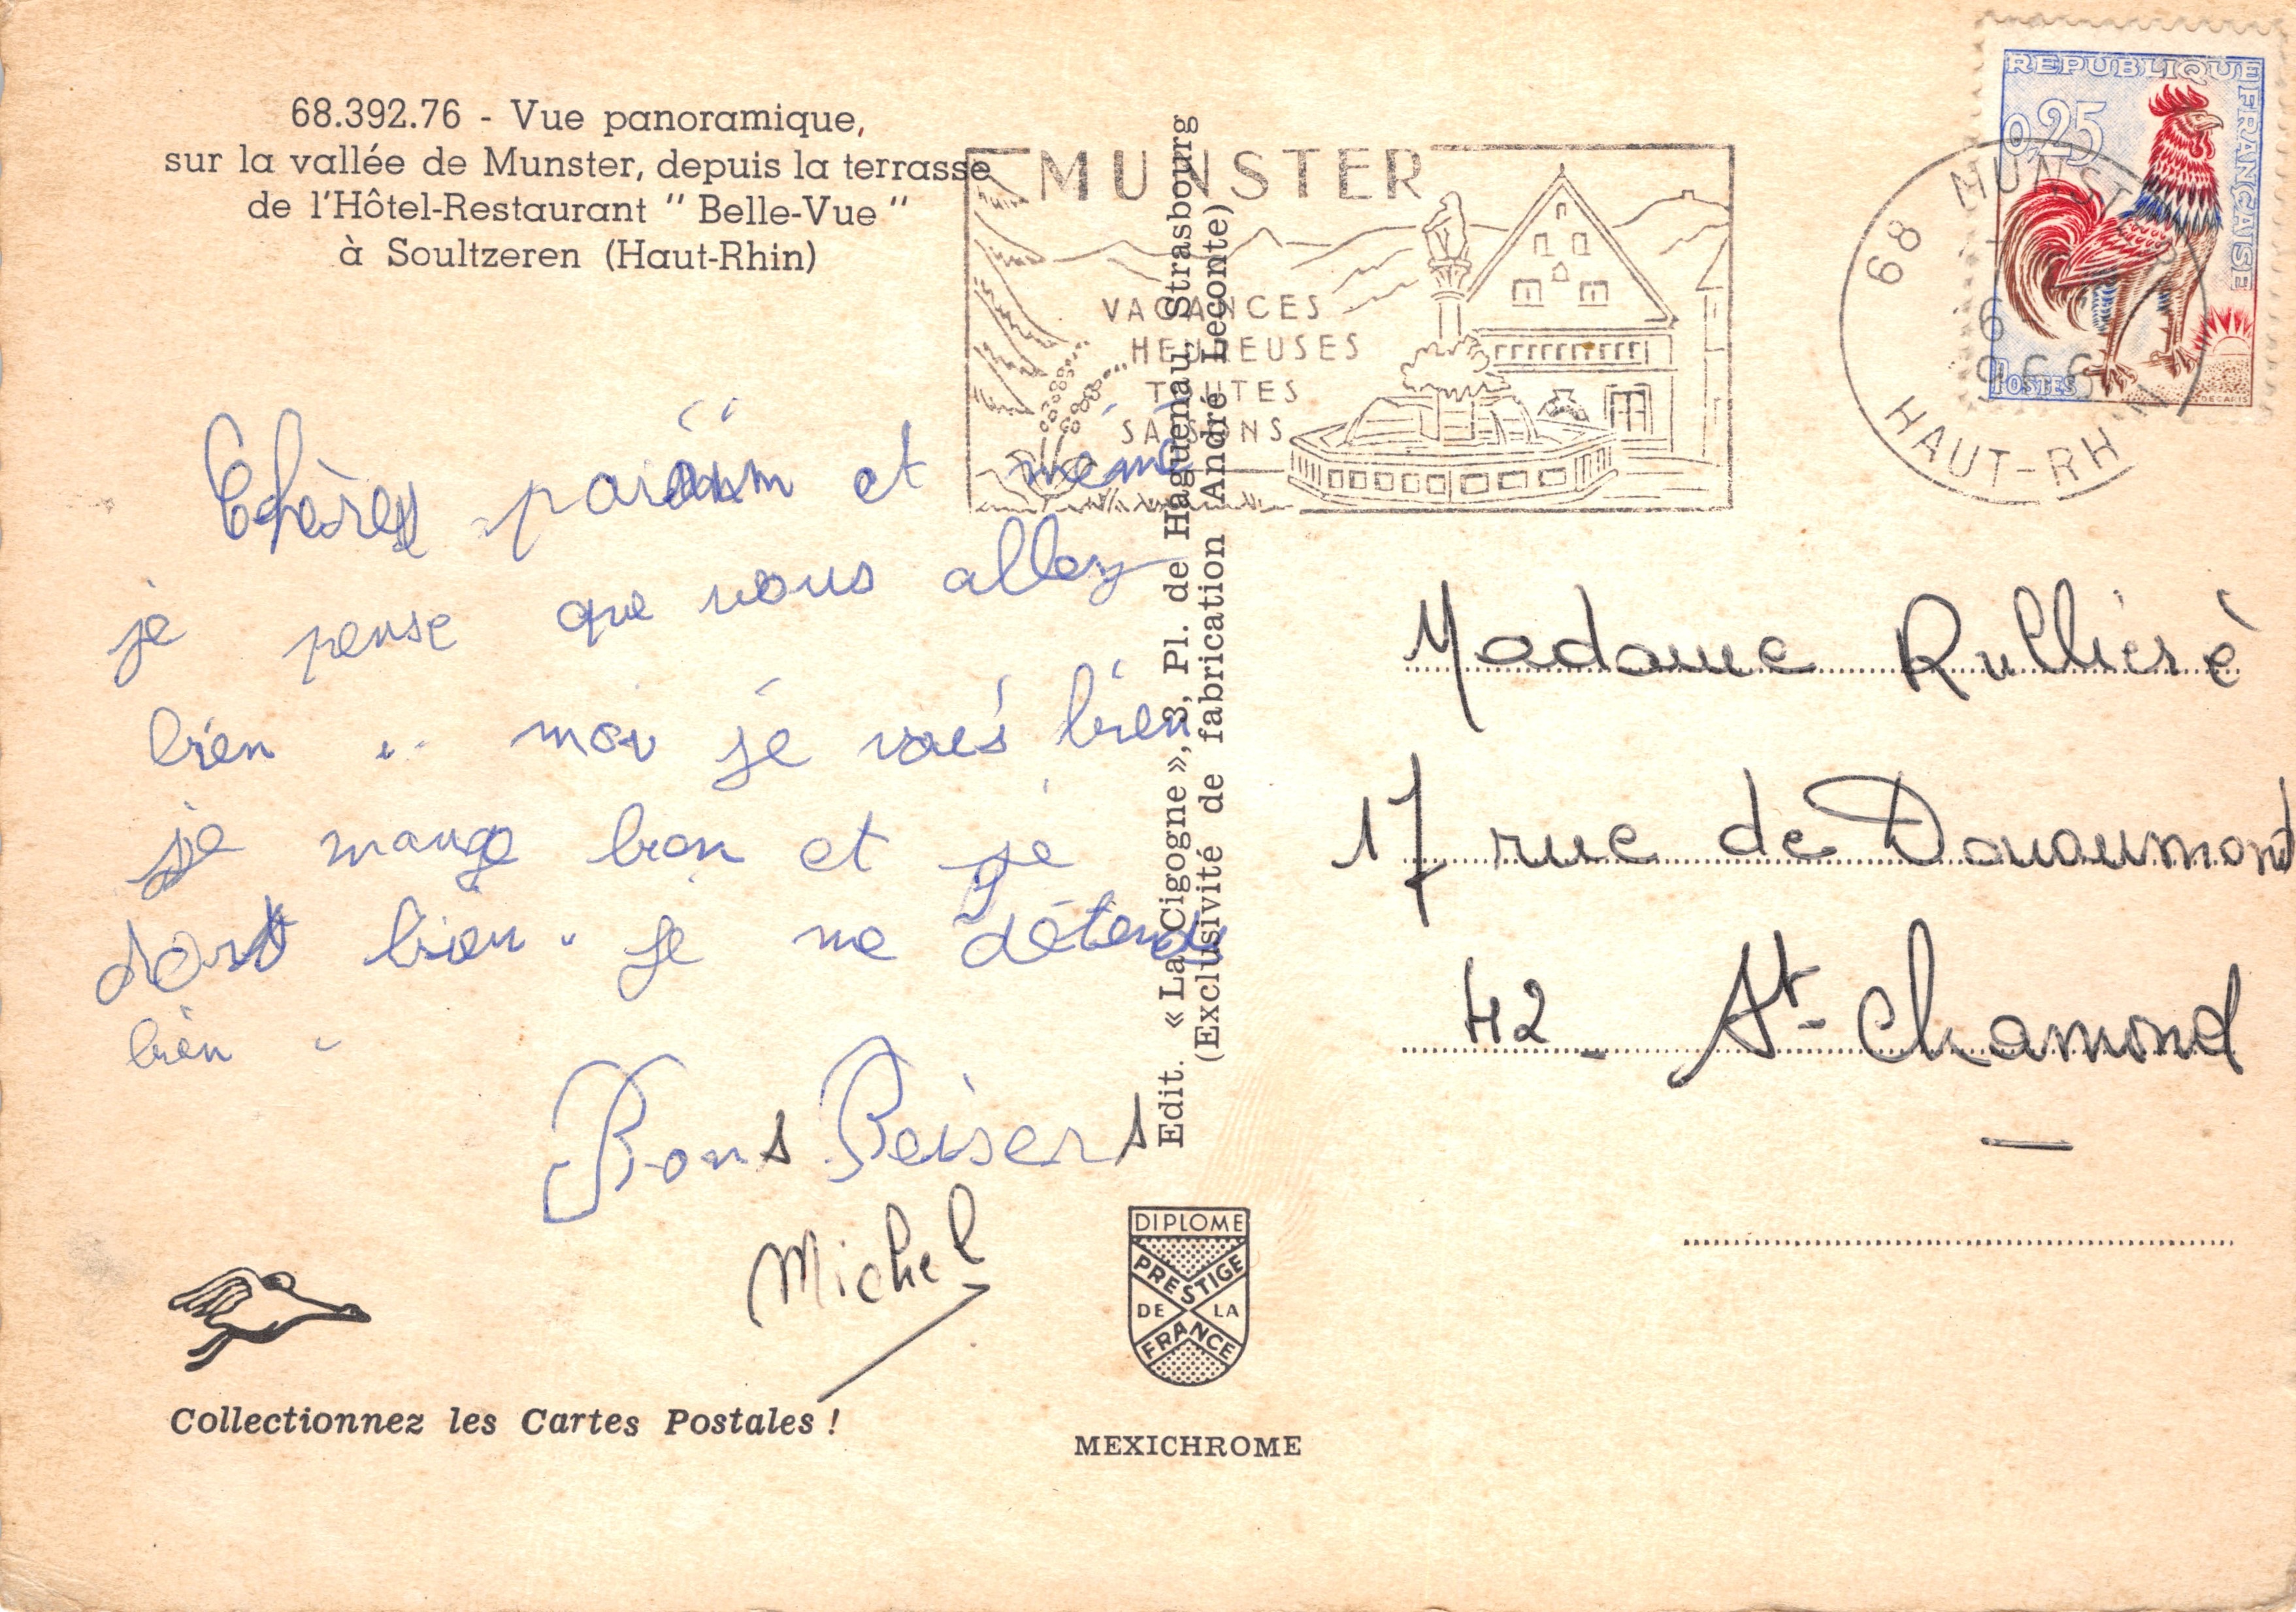 68.392.76 - Vue panoramique,
sur la vallée de Munster, depuis la terrasse
de l'Hôtel-Restaurant " Belle-Vue "
à Soultzeren (Haut-Rhin)
MUNSTER
VACANCES
HEUREUSES
TOUTES
SAISONS
REPUBLIQUE FRANÇAISE
0,25
POSTES
DECARIS
68 MUNSTER
HAUT-RHIN
Chères et mémé
je pense que vous allez
bien . moi je vais bien
je mange bien et je
dort bien . je me détend
bien .
Bons Beisers
Michel
Edit. « La Cigogne », 3, Pl. de Haguenau, Strasbourg
(Exclusivité de fabrication André Leconte)
Madame Rullière
17 rue de Douaumont
42 - St-Chamond
DIPLOME
PRESTIGE
DE LA
FRANCE
Collectionnez les Cartes Postales !
MEXICHROME